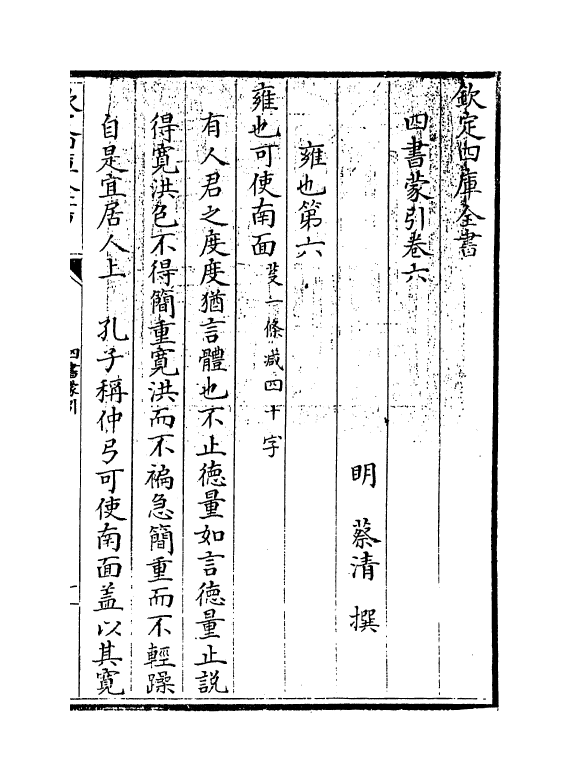 欽定四庫全書
四書蒙引卷六
明 蔡清 撰
雍也第六
雍也可使南面 㕛一條减四十字
有人君之度度猶言體也不止徳量如言徳量止説
得寛洪包不得簡重寛洪而不褊急簡重而不輕躁
自是宜居人上 孔子稱仲弓可使南面盖以其寛
四書蒙引